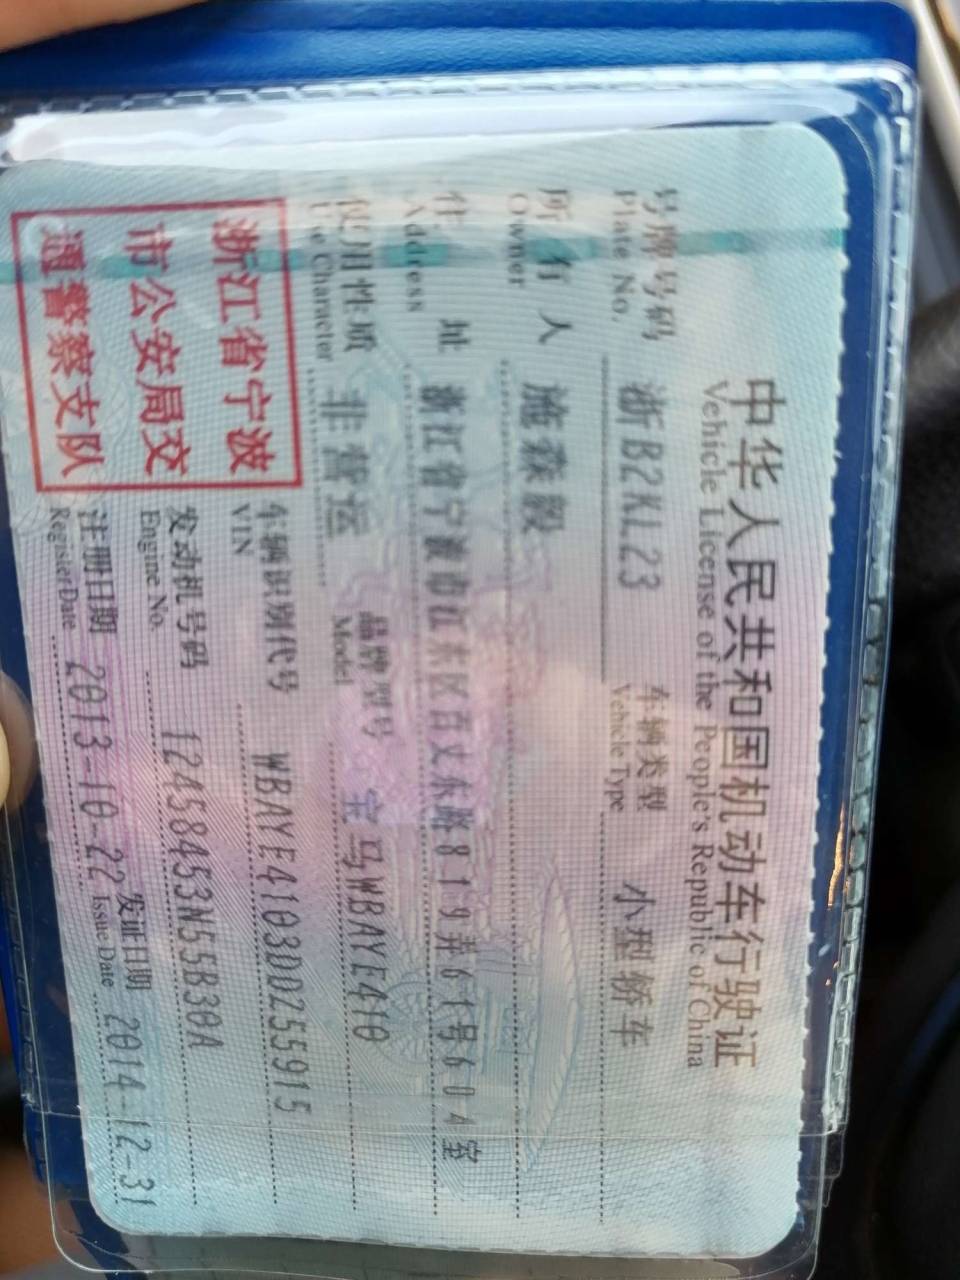 中华人民共和国机动车行驶证
Vehicle License of the People's Republic of China
号牌号码 浙B2KL23 车辆类型 小型轿车
Plate No. Vehicle Type
所有人 施森毅
Owner
住址 浙江省宁波市江东区百丈东路819弄61号604室
Address
使用性质 非营运 品牌型号 宝马WBAYE410
Use Character Model
浙江省宁波
市公安局交
通警察支队
车辆识别代号 WBAYE4103DD255915
VIN
发动机号码 12458453N55B30A
Engine No.
注册日期 2013-10-22 发证日期 2014-12-31
Register Date Issue Date